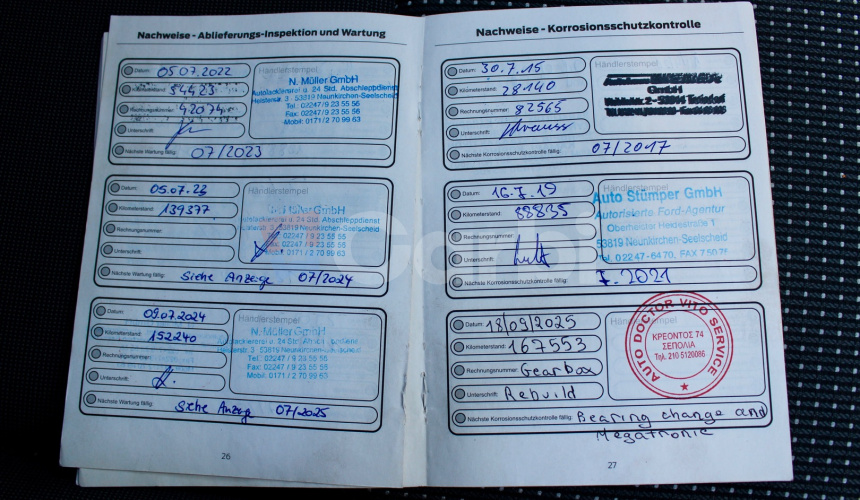 Nachweise - Ablieferungs-Inspektion und Wartung
Datum: 05.07.2022
Händlerstempel
N. Müller GmbH
Autolackiererei u. 24 Std. Abschleppdienst
53819 Neunkirchen-Seelscheid
Tel.: 02247 / 9 23 55 56
Fax: 02247 / 9 23 55 56
Mobil: 0171 / 2 70 99 63
Kilometerstand:
Rechnungsnummer: 42074
Unterschrift:
Nächste Wartung fällig: 07/2023
Datum: 05.07.23
Händlerstempel
Müller GmbH
u. 24 Std. Abschleppdienst
53819 Neunkirchen-Seelscheid
02247 / 9 23 55 56
02247 / 9 23 55 56
0171 / 2 70 99 63
Kilometerstand: 139377
Rechnungsnummer:
Unterschrift:
Nächste Wartung fällig: Siehe Anzeige 07/2024
Datum: 09.07.2024
Händlerstempel
N. Müller GmbH
53819 Neunkirchen-Seelscheid
Tel.: 02247 / 9 23 55 56
Fax: 02247 / 9 23 55 56
Mobil: 0171 / 2 70 99 63
Kilometerstand: 152240
Rechnungsnummer:
Unterschrift:
Nächste Wartung fällig: Siehe Anzeige 07/2025
26
Nachweise - Korrosionsschutzkontrolle
Datum: 30.7.15
Händlerstempel
GmbH
Kilometerstand: 28140
Rechnungsnummer: 82565
Unterschrift:
Nächste Korrosionsschutzkontrolle fällig: 07/2017
Datum: 16.7.19
Händlerstempel
Auto Stümper GmbH
Autorisierte Ford-Agentur
Oberheister Heidestraße 1
53819 Neunkirchen-Seelscheid
Tel. 02247-6470, FAX
Kilometerstand: 88835
Rechnungsnummer:
Unterschrift:
Nächste Korrosionsschutzkontrolle fällig: 7.2021
Datum: 18/09/2025
Händlerstempel
AUTO DOCTOR VITO SERVICE
ΚΡΕΟΝΤΟΣ 74
ΣΕΠΟΛΙΑ
Τηλ. 210 5120086
Kilometerstand: 167553
Rechnungsnummer: Gearbox
Unterschrift: Rebuild
Nächste Korrosionsschutzkontrolle fällig: Bearing change and
Megatronic
27